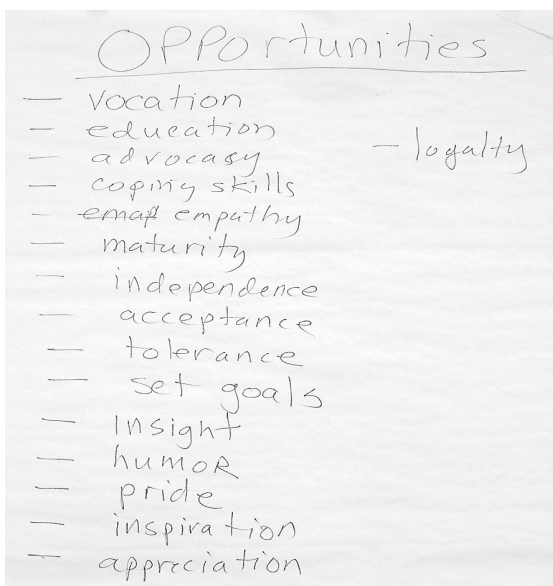 OPPortunities
— vocation
— education
— advocasy
— coping skills
— emap empathy
— maturity
— independence
— acceptance
— tolerance
— set goals
— Insight
— humoR
— pride
— inspiration
— appreciation
— loyalty